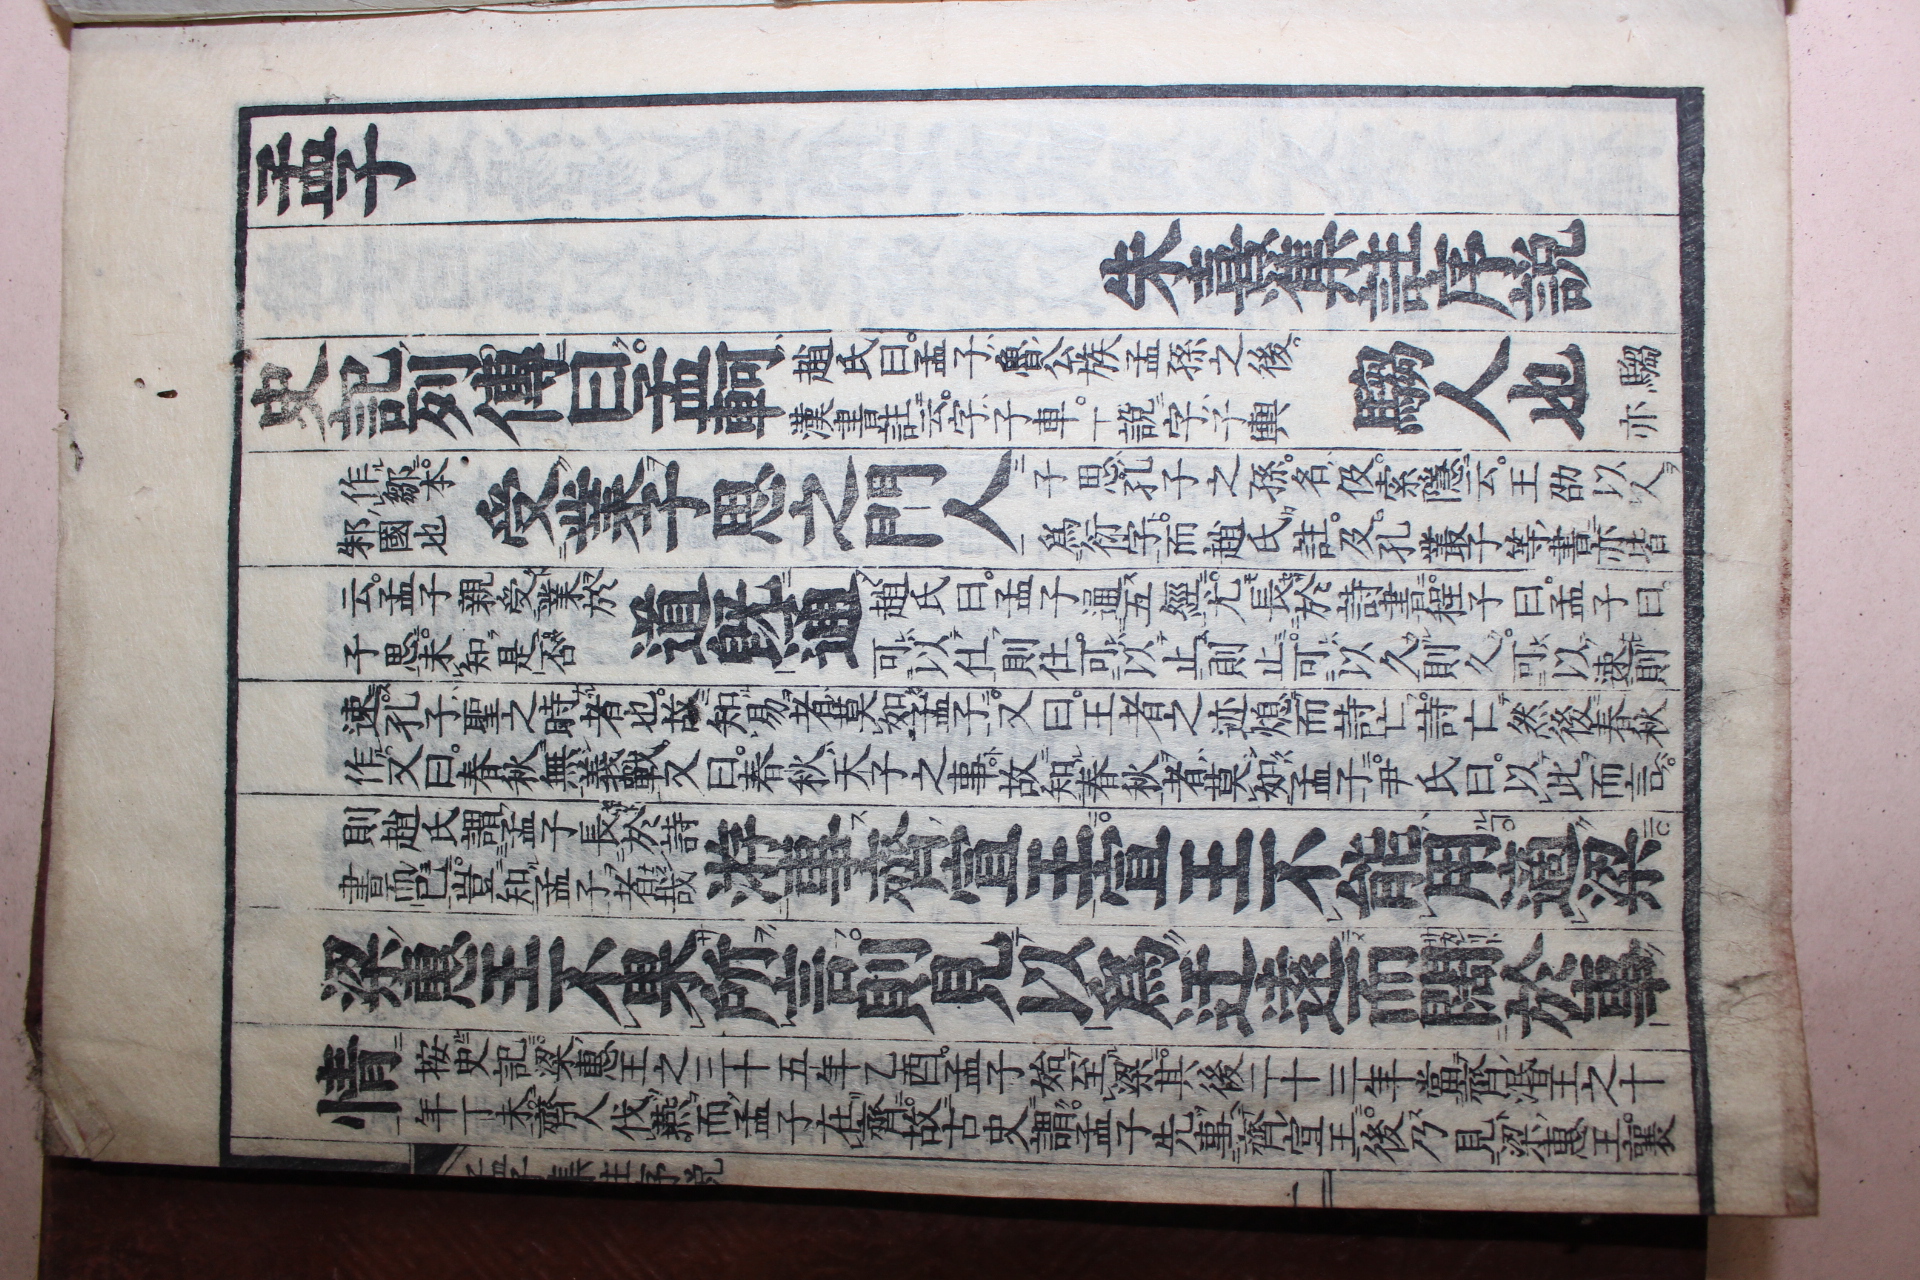 孟子
朱熹集註序說
史記列傳曰孟軻
趙氏曰。孟子魯公族孟孫之後。
漢書註云。字子車。一說字子輿
騶人也
騶
亦
作鄒。本
邾國也
受業子思之門人
子思孔子之孫。名伋。索隱云。王劭以人
爲衍字。而趙氏註。及孔叢子等書亦皆
云。孟子親受業於
子思。未知是否
道旣通
趙氏曰。孟子通五經。尤長於詩書。程子曰。孟子曰。
可以仕則仕。可以止則止。可以久則久。可以速則
速。孔子聖之時者也。故知易者莫如孟子。又曰。王者之迹熄而詩亡。詩亡然後春秋
作。又曰。春秋無義戰。又曰。春秋天子之事。故知春秋者莫如孟子。尹氏曰。以此而言。
則趙氏謂孟子長於詩
書而已。豈知孟子者哉
游事齊宣王。宣王不能用適梁。
梁惠王不果所言。則見以爲迂遠而闊於事
情
按史記。梁惠王之三十五年乙酉。孟子始至梁。其後二十三年當齊湣王之十
年丁未。齊人伐燕。而孟子在齊。故古史謂。孟子先事齊宣王。後乃見梁惠王。襄
孟子集註序說
一